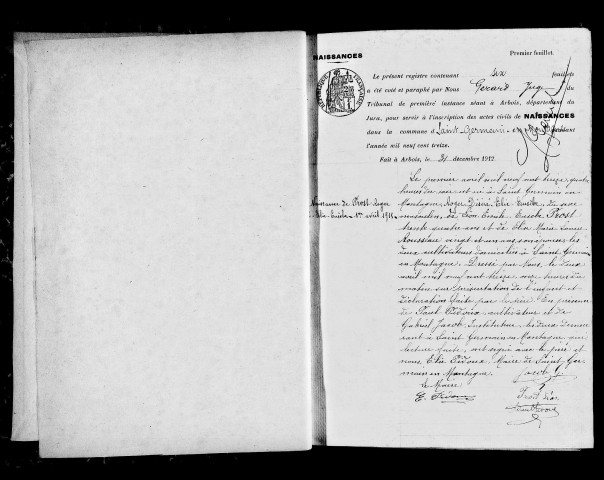 NAISSANCES
Premier feuillet.
RÉPUBLIQUE FRANÇAISE
Le présent registre contenant six feuillets
a été coté et paraphé par Nous Gérard Juge du
Tribunal de première instance séant à Arbois, département du
Jura, pour servir à l'inscription des actes civils de NAISSANCES
dans la commune de Saint-Germain-en- pendant
l'année mil neuf cent treize.
Fait à Arbois, le 31 décembre 1912.
Naissance de Prost Roger
Elie Eusèbe 1er avril 1913
Le premier avril mil neuf cent treize,
heures du soir est né à Saint Germain en
Montagne, Roger Désiré, Elie Eusèbe, du sexe
masculin, de Léon Emile Eusèbe Prost
trente quatre ans et de Elia Marie Louise
Roussiare vingt et un ans son épouse, les
deux cultivateurs domiciliés à Saint Germain
en Montagne. Dressé par Nous, le deux
avril mil neuf cent treize onze heures du
matin sur présentation de l'enfant et
déclaration faite par le père. En présence
de Paul cultivateur et de
Gabriel Jacob, Instituteur, les deux demeu
rant à Saint Germain en Montagne qui
lecture faite, ont signé avec le père et
nous, Elie Maire de Saint Ger
main en Montagne.
Jacob G
Le Maire
E.
Prost Léon